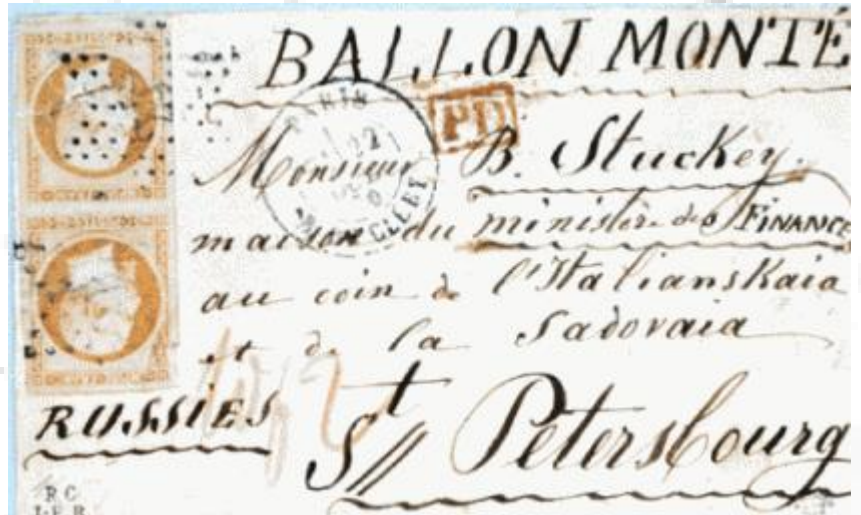 BALLON MONTÉ
PARIS
PD
22
Monsieur B. Stuckey.
maison du ministère des FINANCE
au coin de l'Italianskaia
et de la Sadovaia
RUSSIES
St Petersbourg